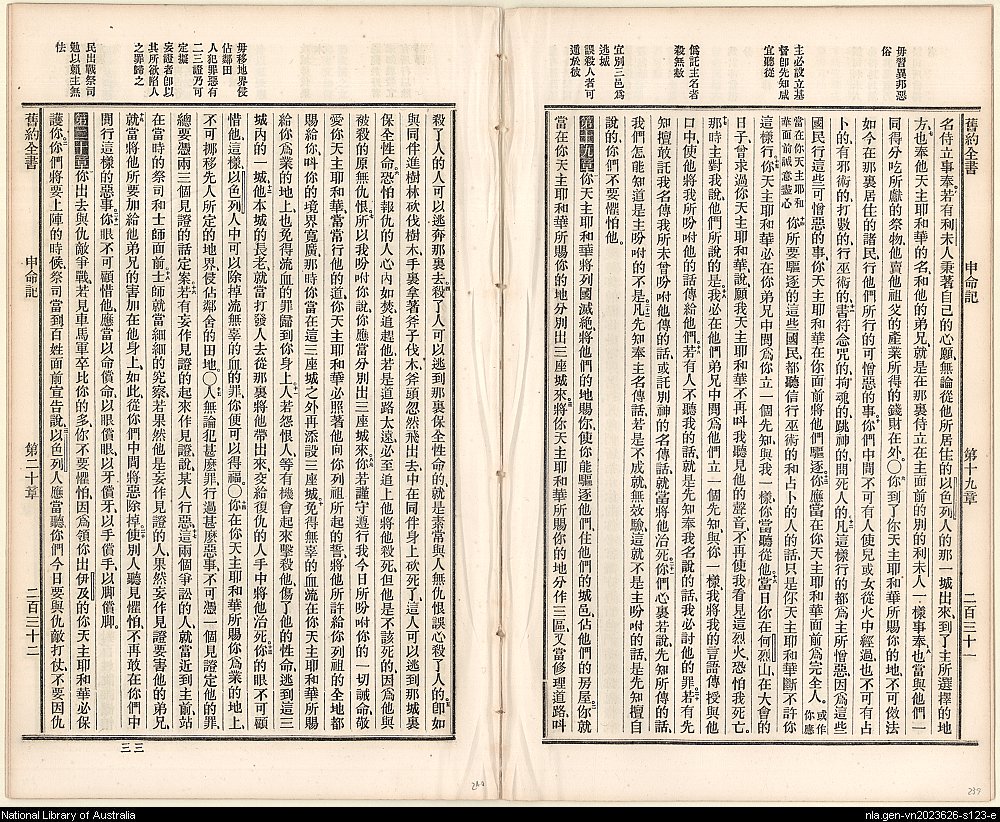 毋習異邦惡
俗
主必設立基
督即先知咸
宜聽從
僞託主名者
殺無赦
宜別三邑爲
逃城
誤殺人者可
遁於彼
舊約全書 申命記 第十九章 二百三十一
名侍立事奉若有利未人秉著自己的心願無論從他所居住的以色列人的那一城出來到了主所選擇的地
方也奉他天主耶和華的名和他的弟兄就是在那裏侍立在主面前的別的利未人一樣事奉也當與他們一
同得分吃所獻的祭物他賣他祖父的產業所得的錢財在外〇你到了你天主耶和華所賜你的地不可倣法
如今在那裏居住的諸民行他們所行的可憎惡的事你們中間不可有人使兒或女從火中經過也不可有占
卜的有邪術的打數的行巫術的書符念咒的拘魂的跳神的問死人的凡這樣行的都爲主所憎惡因爲這些
國民行這些可憎惡的事你天主耶和華在你面前將他們驅逐你應當在你天主耶和華面前爲完全人或作你應
當在你天主耶和華面前誠意盡心你所要驅逐的這些國民都聽信行巫術的和占卜的人的話只是你天主耶和華斷不許你
這樣行你天主耶和華必在你弟兄中間爲你立一個先知與我一樣你當聽從他當日你在何烈山在大會的
日子曾求過你天主耶和華說願我天主耶和華不再叫我聽見他的聲音不再使我看見這烈火恐怕我死亡
那時主對我說他們所說的是我必在他們弟兄中間爲他們立一個先知與你一樣我將我的言語傳授與他
口中使他將我所吩咐他的話傳給他們若有人不聽我的話就是先知奉我名說的話我必討他的罪若有先
知擅敢託我名傳我所未曾吩咐他傳的話或託別神的名傳話就當將他治死你們心裏若說先知所傳的話
我們怎能知道是主吩咐的不是凡先知奉主名傳話若是不成就無效驗這就不是主吩咐的話是先知擅自
說的你們不要懼怕他
第十九章你天主耶和華將列國滅絕將他們的地賜你使你能驅逐他們住他們的城邑佔他們的房屋你就
當在你天主耶和華所賜你的地分別出三座城來將你天主耶和華所賜你的地分作三區又當修理道路叫
毋移地界侵
佔鄰田
人犯罪惡有
二三證乃可
定擬
妄證者即以
其所欲陷人
之罪歸之
民出戰祭司
勉以賴主無
怯
殺了人的人可以逃奔那裏去殺了人可以逃到那裏保全性命的就是素常與人無仇恨誤心殺了人的即如
與同伴進樹林砍伐樹木手裏拿著斧子伐木斧頭忽然飛出去中在同伴身上砍死了這人可以逃到那城裏
保全性命恐怕報仇的人心內如焚追趕他若是道路太遠必至追上他將他殺死但他是不該死的因爲他與
被殺的原無仇恨所以我吩咐你說你應當分別出三座城來你若謹守遵行我今日所吩咐你的一切誡命敬
愛你天主耶和華常常行他的道你天主耶和華必照著他向你列祖所起的誓將他所許給你列祖的全地都
賜給你叫你的境界寬廣那時你當在這三座城之外再添設三座城免得無辜的血流在你天主耶和華所賜
給你爲業的地上也免得流血的罪歸到你身上人若怨恨人等有機會起來擊殺他傷了他的性命逃到這三
城內的一城他本城的長老就當打發人去從那裏將他帶出來交給復仇的人手中將他治死你的眼不可顧
惜他這樣以色列人中可以除掉流無辜的血的罪你便可以得福〇你在你天主耶和華所賜你爲業的地上
不可挪移先人所定的地界侵佔鄰舍的田地〇人無論犯甚麼罪行過甚麼惡事不可憑一個見證定他的罪
總要憑兩三個見證的話定案若有妄作見證的起來作見證說某人行惡這兩個爭訟的人就當近到主前站
在當時的祭司和士師面前士師就當細細的究察若果然他是妄作見證的人果然妄作見證要害他的弟兄
就當將他所要加給他弟兄的害加在他身上如此從你們中間將惡除掉使別人聽見懼怕不再敢在你們中
間行這樣的惡事你眼不可顧惜他應當以命償命以眼償眼以牙償牙以手償手以脚償脚
第二十章你出去與仇敵爭戰若見車馬軍卒比你的多你不要懼怕因爲領你出伊及的你天主耶和華必保
護你你們將要上陣的時候祭司當到百姓面前宣告說以色列人應當聽你們今日要與仇敵打仗不要因仇
舊約全書 申命記 第二十章 二百三十二
三三
240
239
National Library of Australia
nla.gen-vn2023626-s123-e